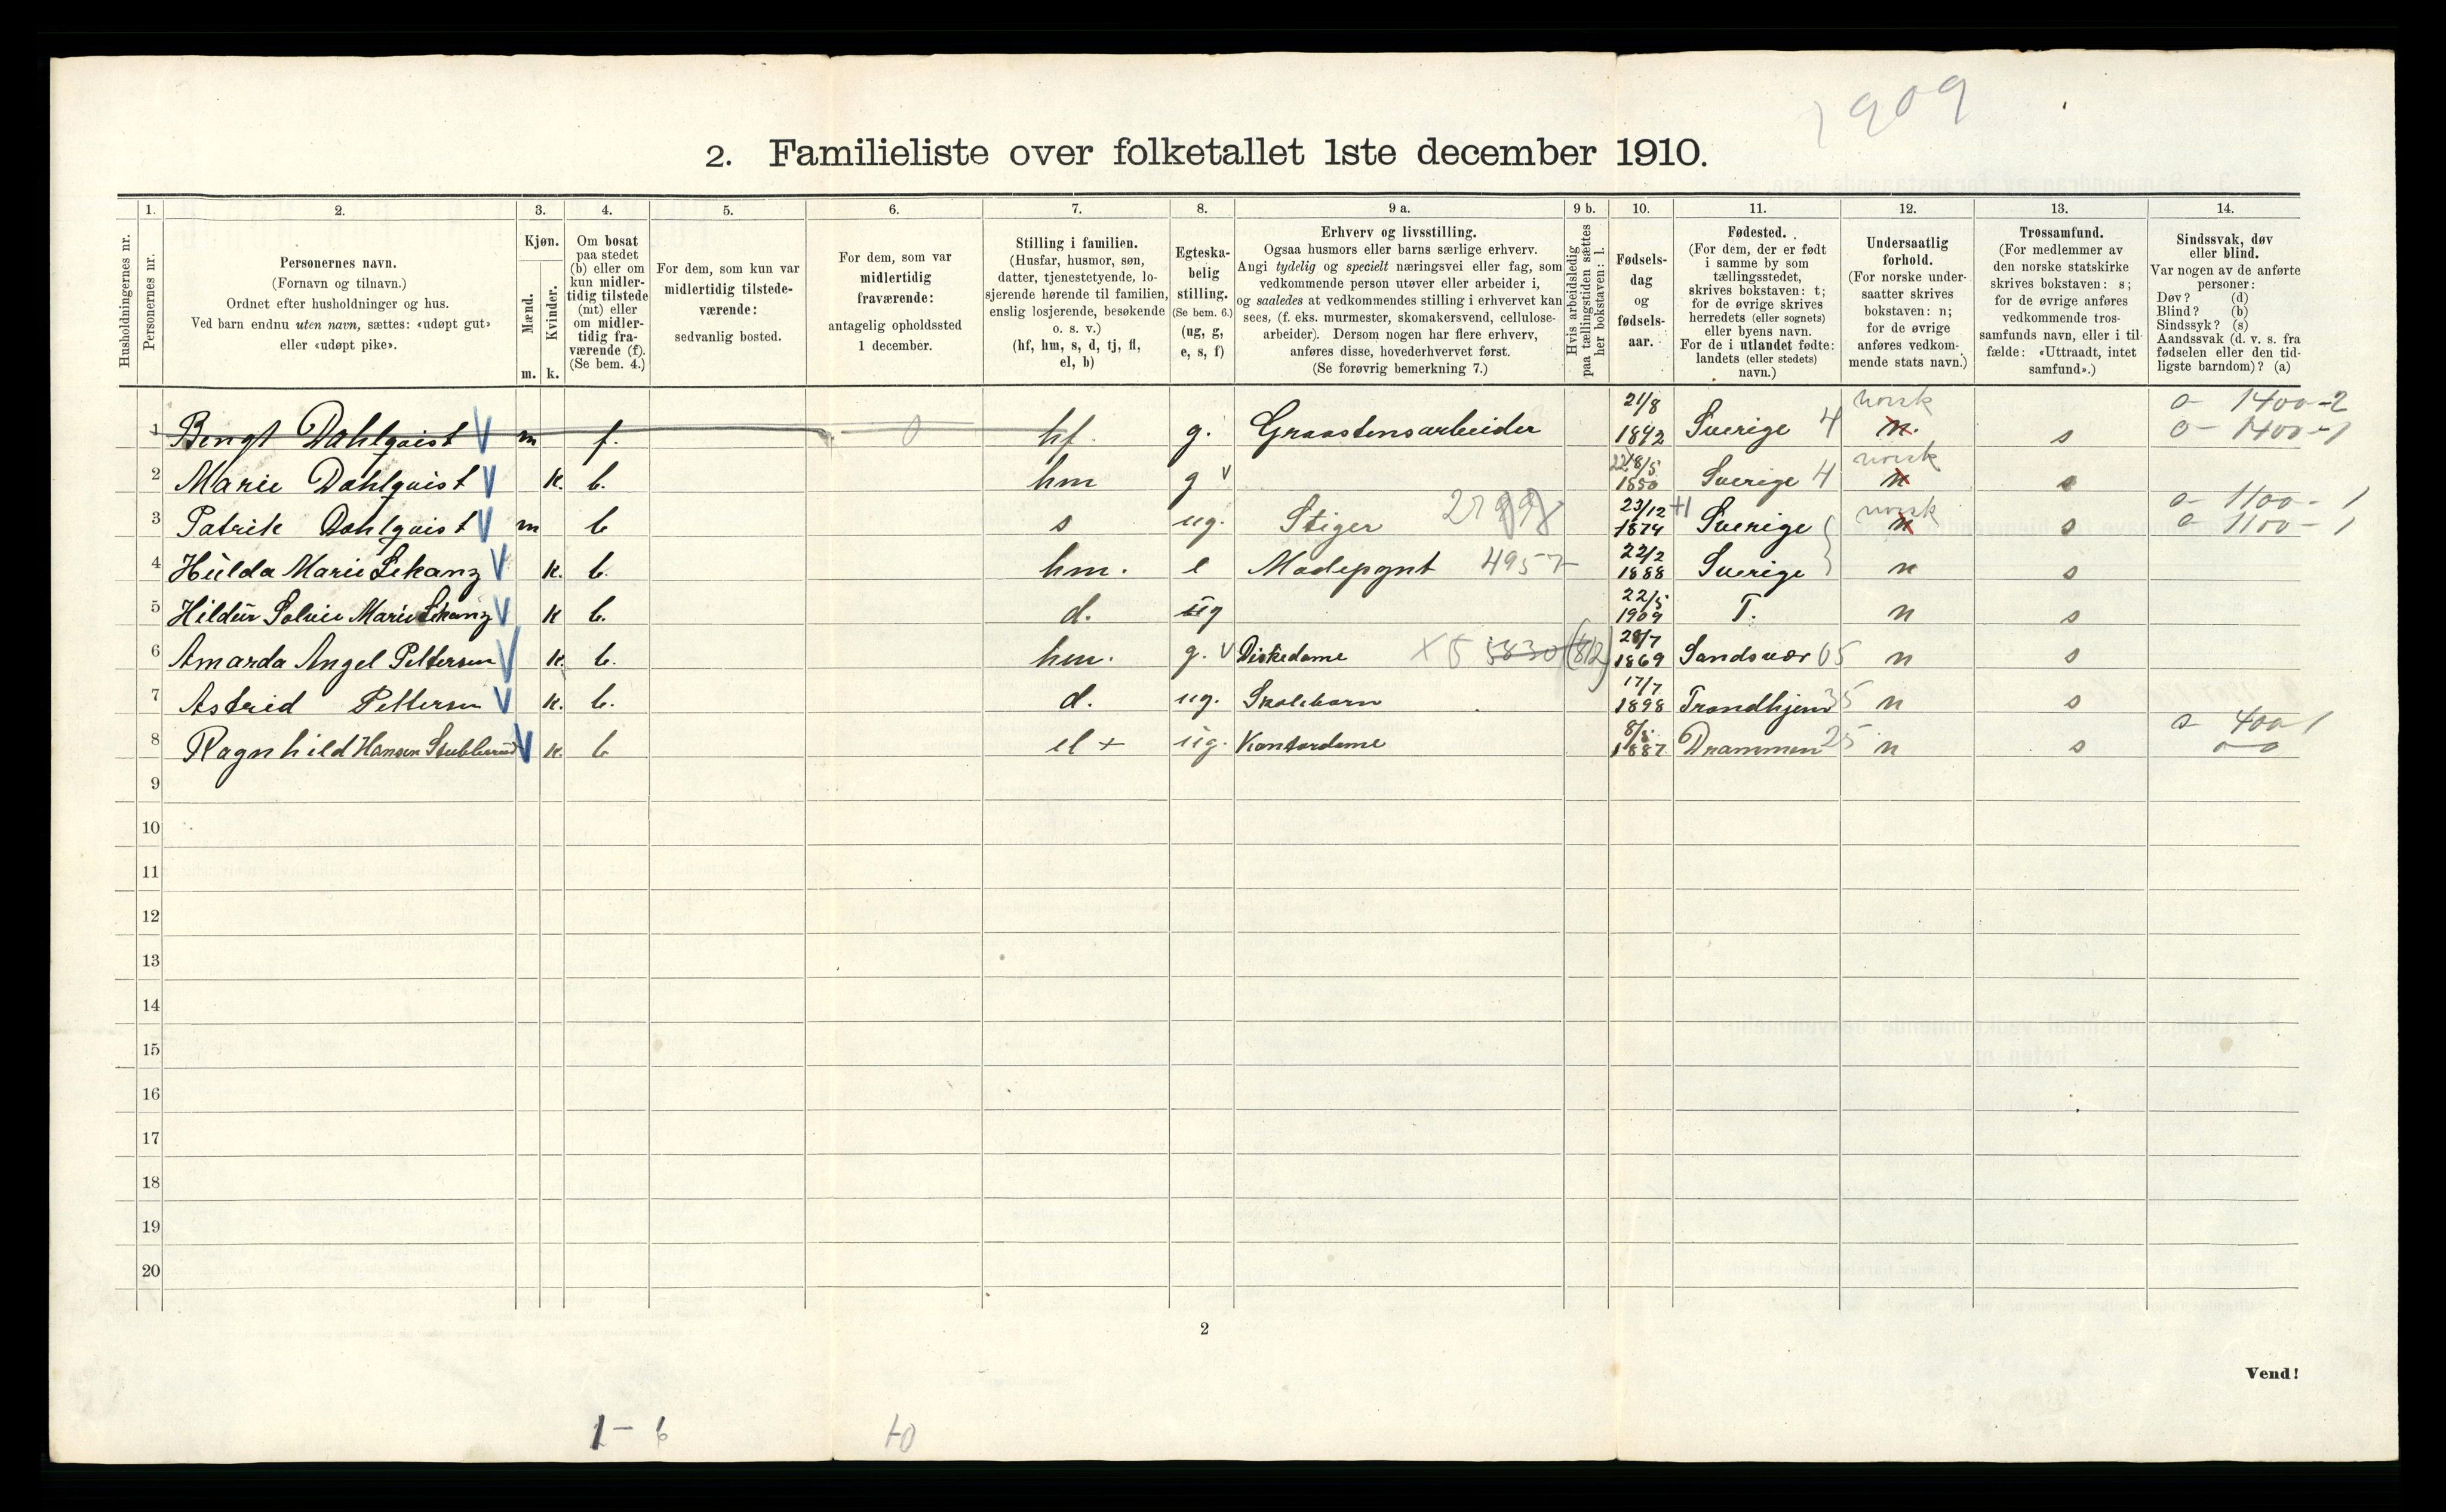 1909
2. Familieliste over folketallet 1ste december 1910.
1. 2. 3. 4. 5. 6. 7. 8. 9 a. 9 b. 10. 11. 12. 13. 14.
Husholdningernes nr.
Personernes nr.
Personernes navn.
(Fornavn og tilnavn.)
Ordnet efter husholdninger og hus.
Ved barn endnu uten navn, sættes: «udøpt gut»
eller «udøpt pike».
Kjøn.
Mænd.
Kvinder.
m. k.
Om bosat
paa stedet
(b) eller om
kun midler-
tidig tilstede
(mt) eller
om midler-
tidig fra-
værende (f).
(Se bem. 4.)
For dem, som kun var
midlertidig tilstede-
værende:
sedvanlig bosted.
For dem, som var
midlertidig
fraværende:
antagelig opholdssted
1 december.
Stilling i familien.
(Husfar, husmor, søn,
datter, tjenestetyende, lo-
sjerende hørende til familien,
enslig losjerende, besøkende
o. s. v.)
(hf, hm, s, d, tj, fl,
el, b)
Egteska-
belig
stilling.
(Se bem. 6.)
(ug, g,
e, s, f)
Erhverv og livsstilling.
Ogsaa husmors eller barns særlige erhverv.
Angi tydelig og specielt næringsvei eller fag, som
vedkommende person utøver eller arbeider i,
og saaledes at vedkommendes stilling i erhvervet kan
sees, (f. eks. murmester, skomakersvend, cellulose-
arbeider). Dersom nogen har flere erhverv,
anføres disse, hovederhvervet først.
(Se forøvrig bemerkning 7.)
Hvis arbeidsledig
paa tællingstiden sættes
her bokstaven: l.
Fødsels-
dag
og
fødsels-
aar.
Fødested.
(For dem, der er født
i samme by som
tællingsstedet,
skrives bokstaven: t;
for de øvrige skrives
herredets (eller sognets)
eller byens navn.
For de i utlandet fødte:
landets (eller stedets)
navn.)
Undersaatlig
forhold.
(For norske under-
saatter skrives
bokstaven: n;
for de øvrige
anføres vedkom-
mende stats navn.)
Trossamfund.
(For medlemmer av
den norske statskirke
skrives bokstaven: s;
for de øvrige anføres
vedkommende tros-
samfunds navn, eller i til-
fælde: «Uttraadt, intet
samfund».)
Sindssvak, døv
eller blind.
Var nogen av de anførte
personer:
Døv? (d)
Blind? (b)
Sindssyk? (s)
Aandssvak (d. v. s. fra
fødselen eller den tid-
ligste barndom)? (a)
1 Bengt Dahlqvist V m f. 0 hf. g. Graastensarbeider 21/8 1842 Sverige 4 norsk n. s o- 1400-2 o- 1400-1
2 Marie Dahlqvist V k. b. hm g v 1850 Sverige 4 norsk n s
3 Patrik Dahlqvist V m b s ug. Stiger 23/12 1874 Sverige norsk n s o- 1100-1 o- 1100-1
4 Hulda Marie Lekang V k. b. hm. e Modepynt 4957 22/2 1888 Sverige n s
5 Hildur Solvei Marie Lekang V k b. d. ug 22/5 1909 T. n s
6 Amanda Angel Pettersen V k. b. hm. g. v Diskedame X 5 5830 (812) 28/7 1869 Sandsvær 05 n s
7 Astrid Pettersen V k. b. d. ug. Skolebarn 17/7 1898 Trondhjem 35 n s
8 Ragnhild Hansen Stubberud V k. b el + ug. Kontordame 8/5 1887 Drammen 25 n s o- 400-1 o-o
9
10
11
12
13
14
15
16
17
18
19
20
2
Vend!
1-6 10